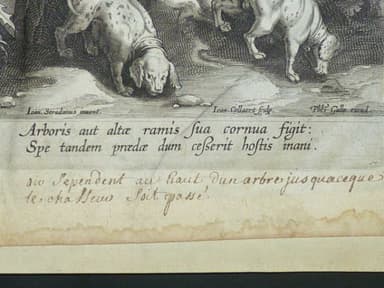 Ioan Stradanus invent. Ioan Collaert sculp. Phls Galle excud.
Arboris aut altæ ramis sua cornua figit:
Spe tandem prædæ dum ceßerit hostis inani.
ou se pendent au haut dun arbre jusquaceque
le chasseur soit passé